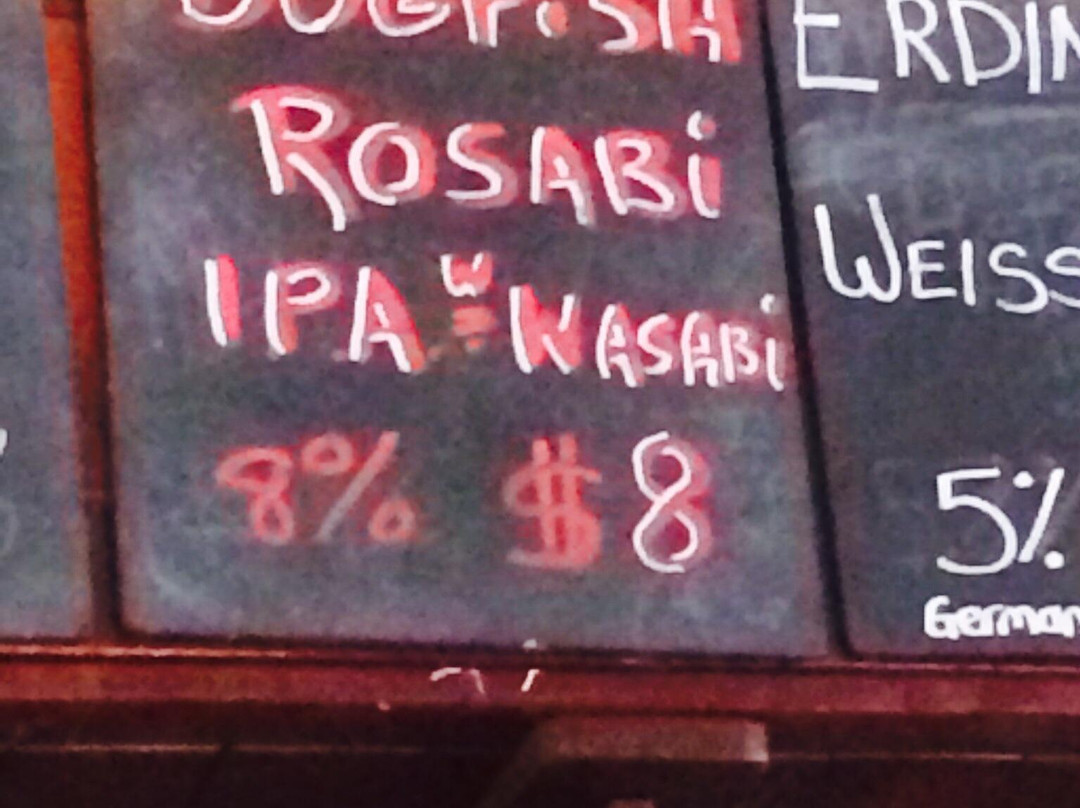 ROSABi
IPA W WASABi
8% $8
WEISS
5%
German